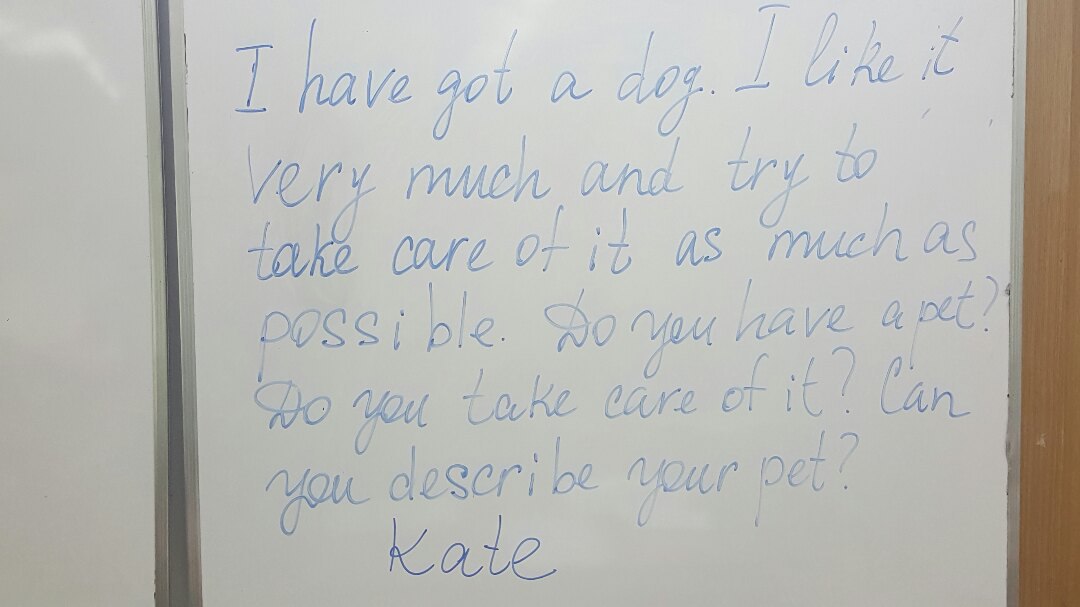 I have got a dog. I like it
very much and try to
take care of it as much as
possible. Do you have a pet?
Do you take care of it? Can
you describe your pet?
Kate